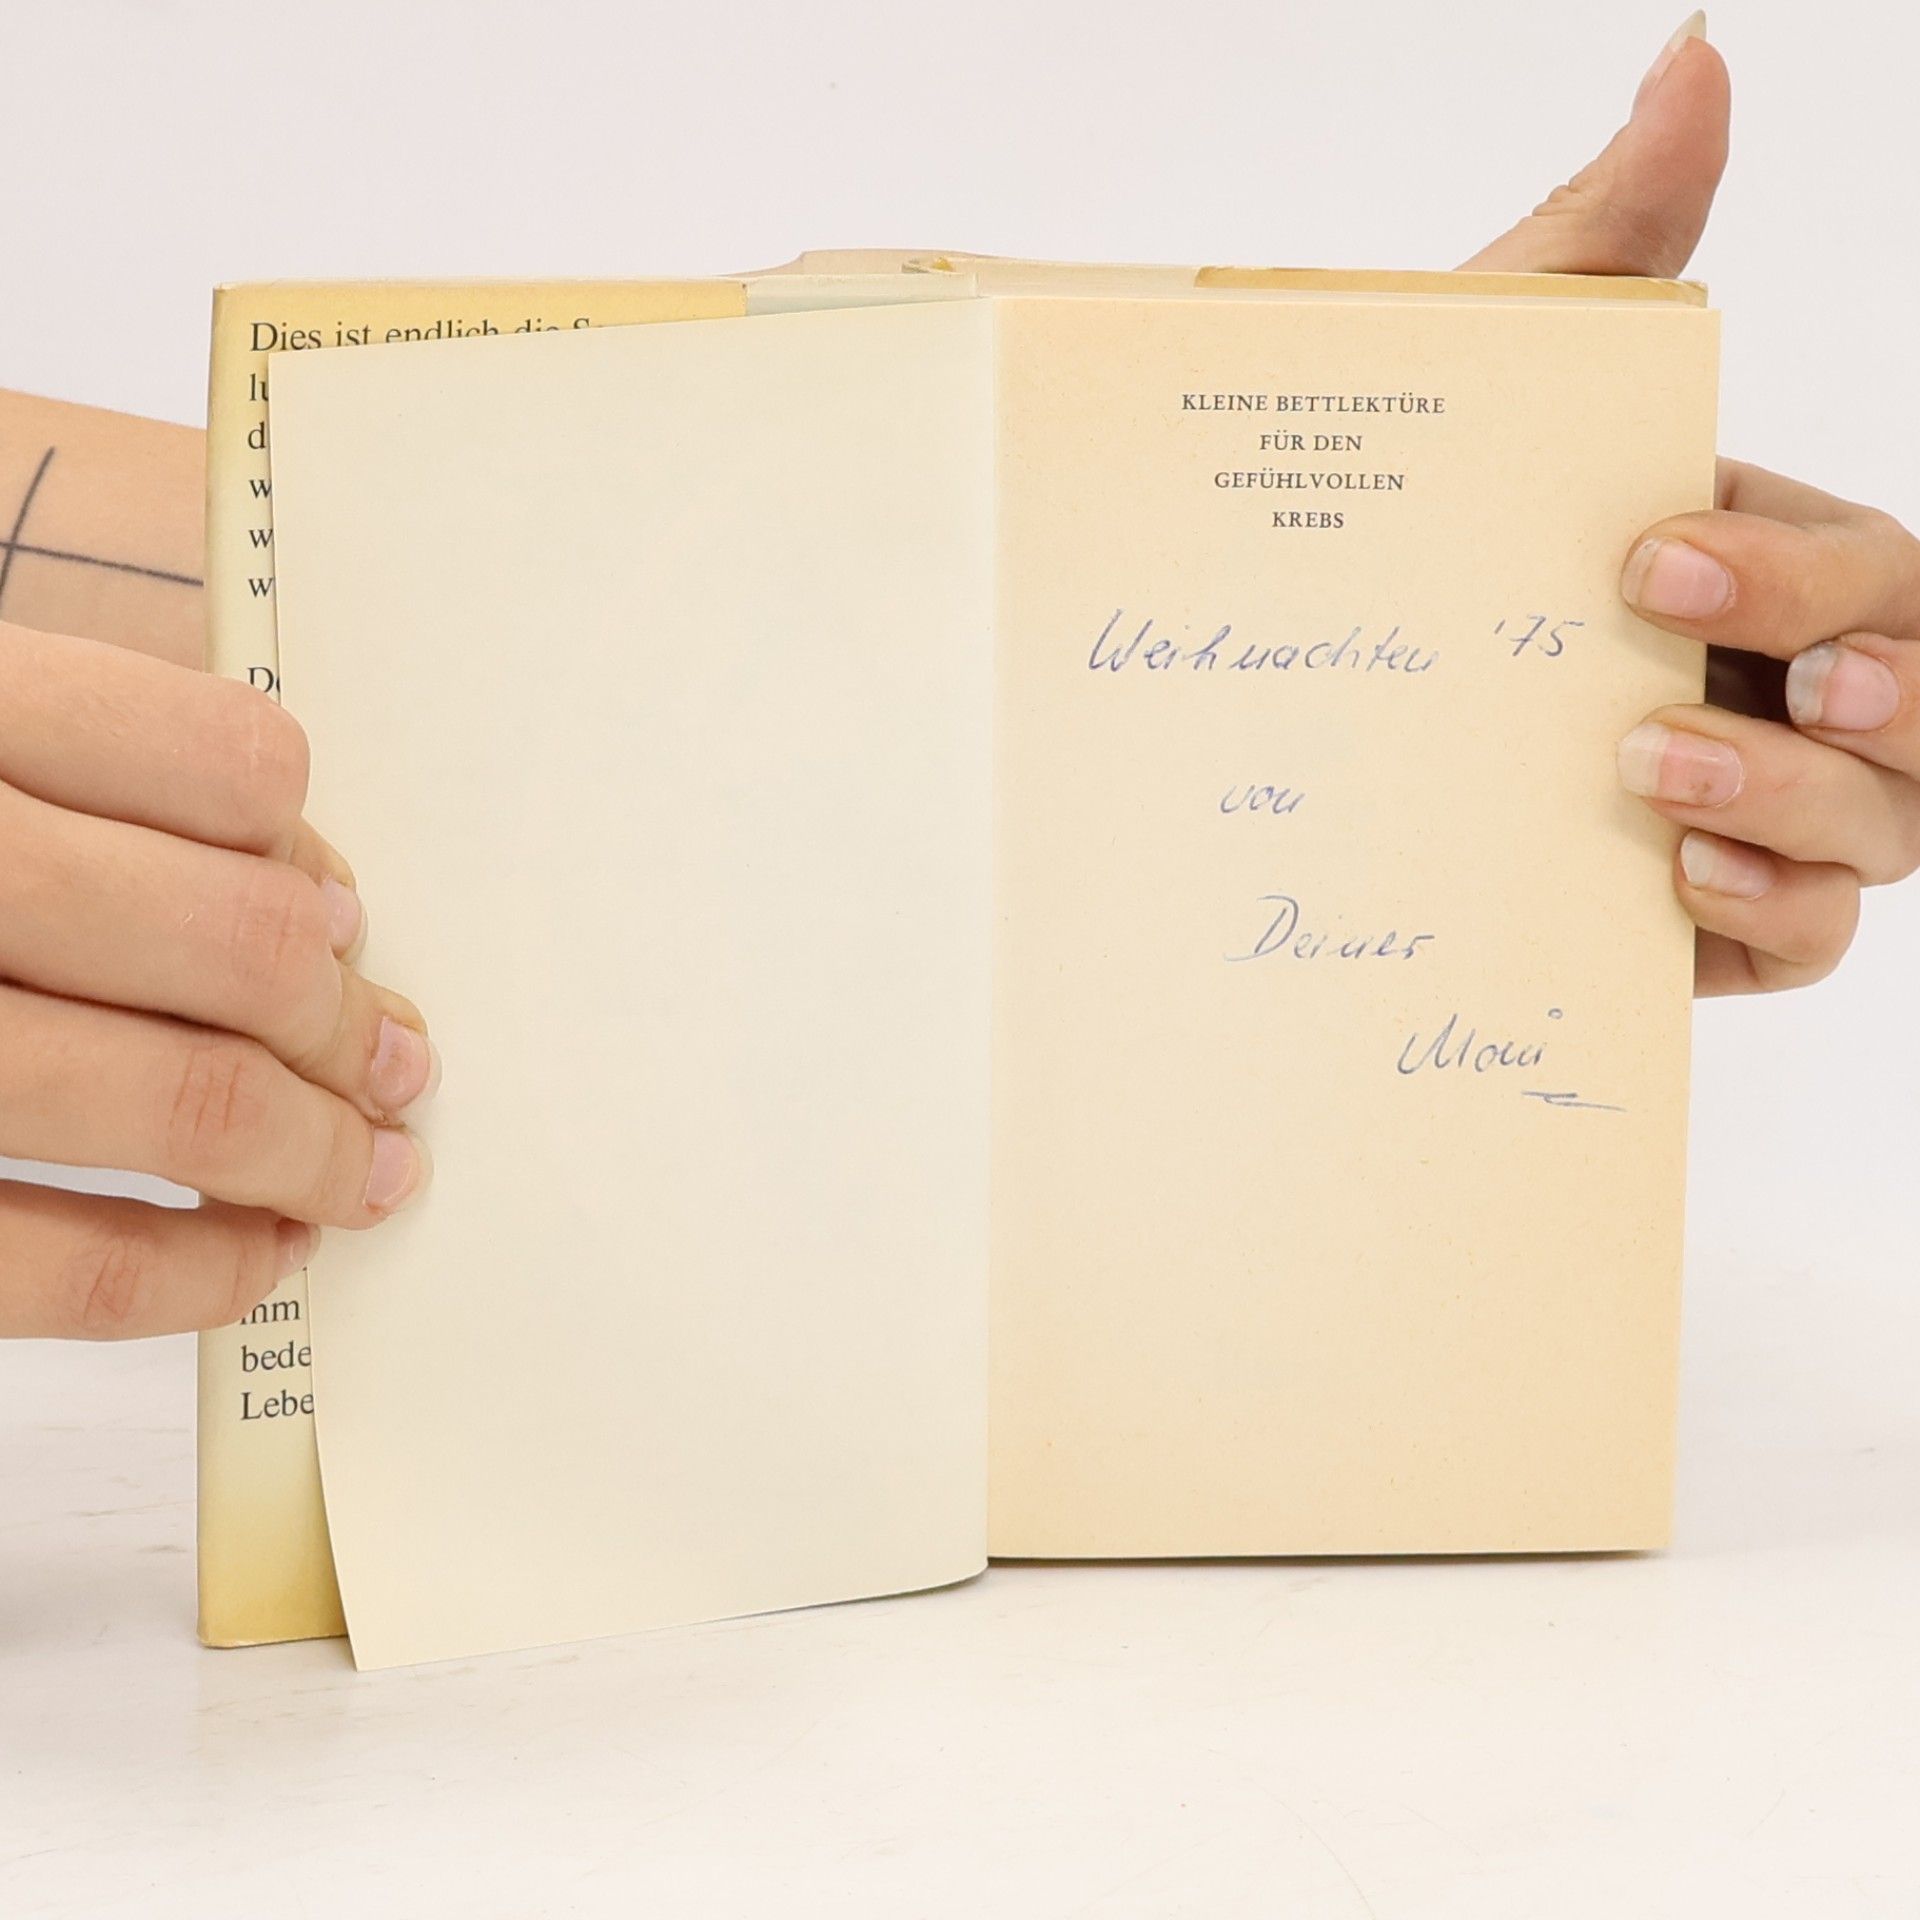 Dies ist endlich die
D
bede
Lebe
KLEINE BETTLEKTÜRE
FÜR DEN
GEFÜHLVOLLEN
KREBS
Weihnachten '75
von
Deiner
Moni